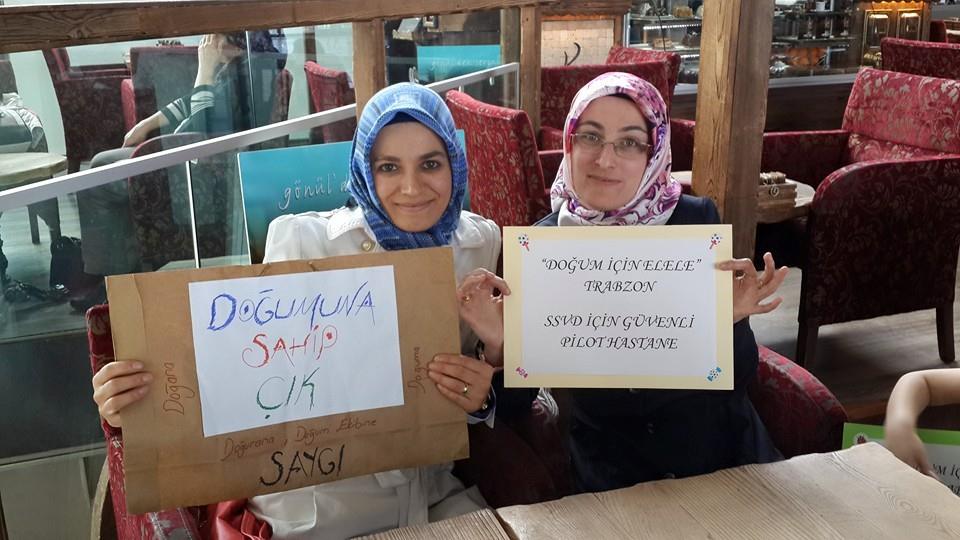 gönül'd
DOĞUMUNA
SAHİP
ÇIK
Doğana
Doğuma
Doğurana, Doğum Ekibine
SAYGI
"DOĞUM İÇİN ELELE"
TRABZON
SSVD İÇİN GÜVENLİ
PİLOT HASTANE